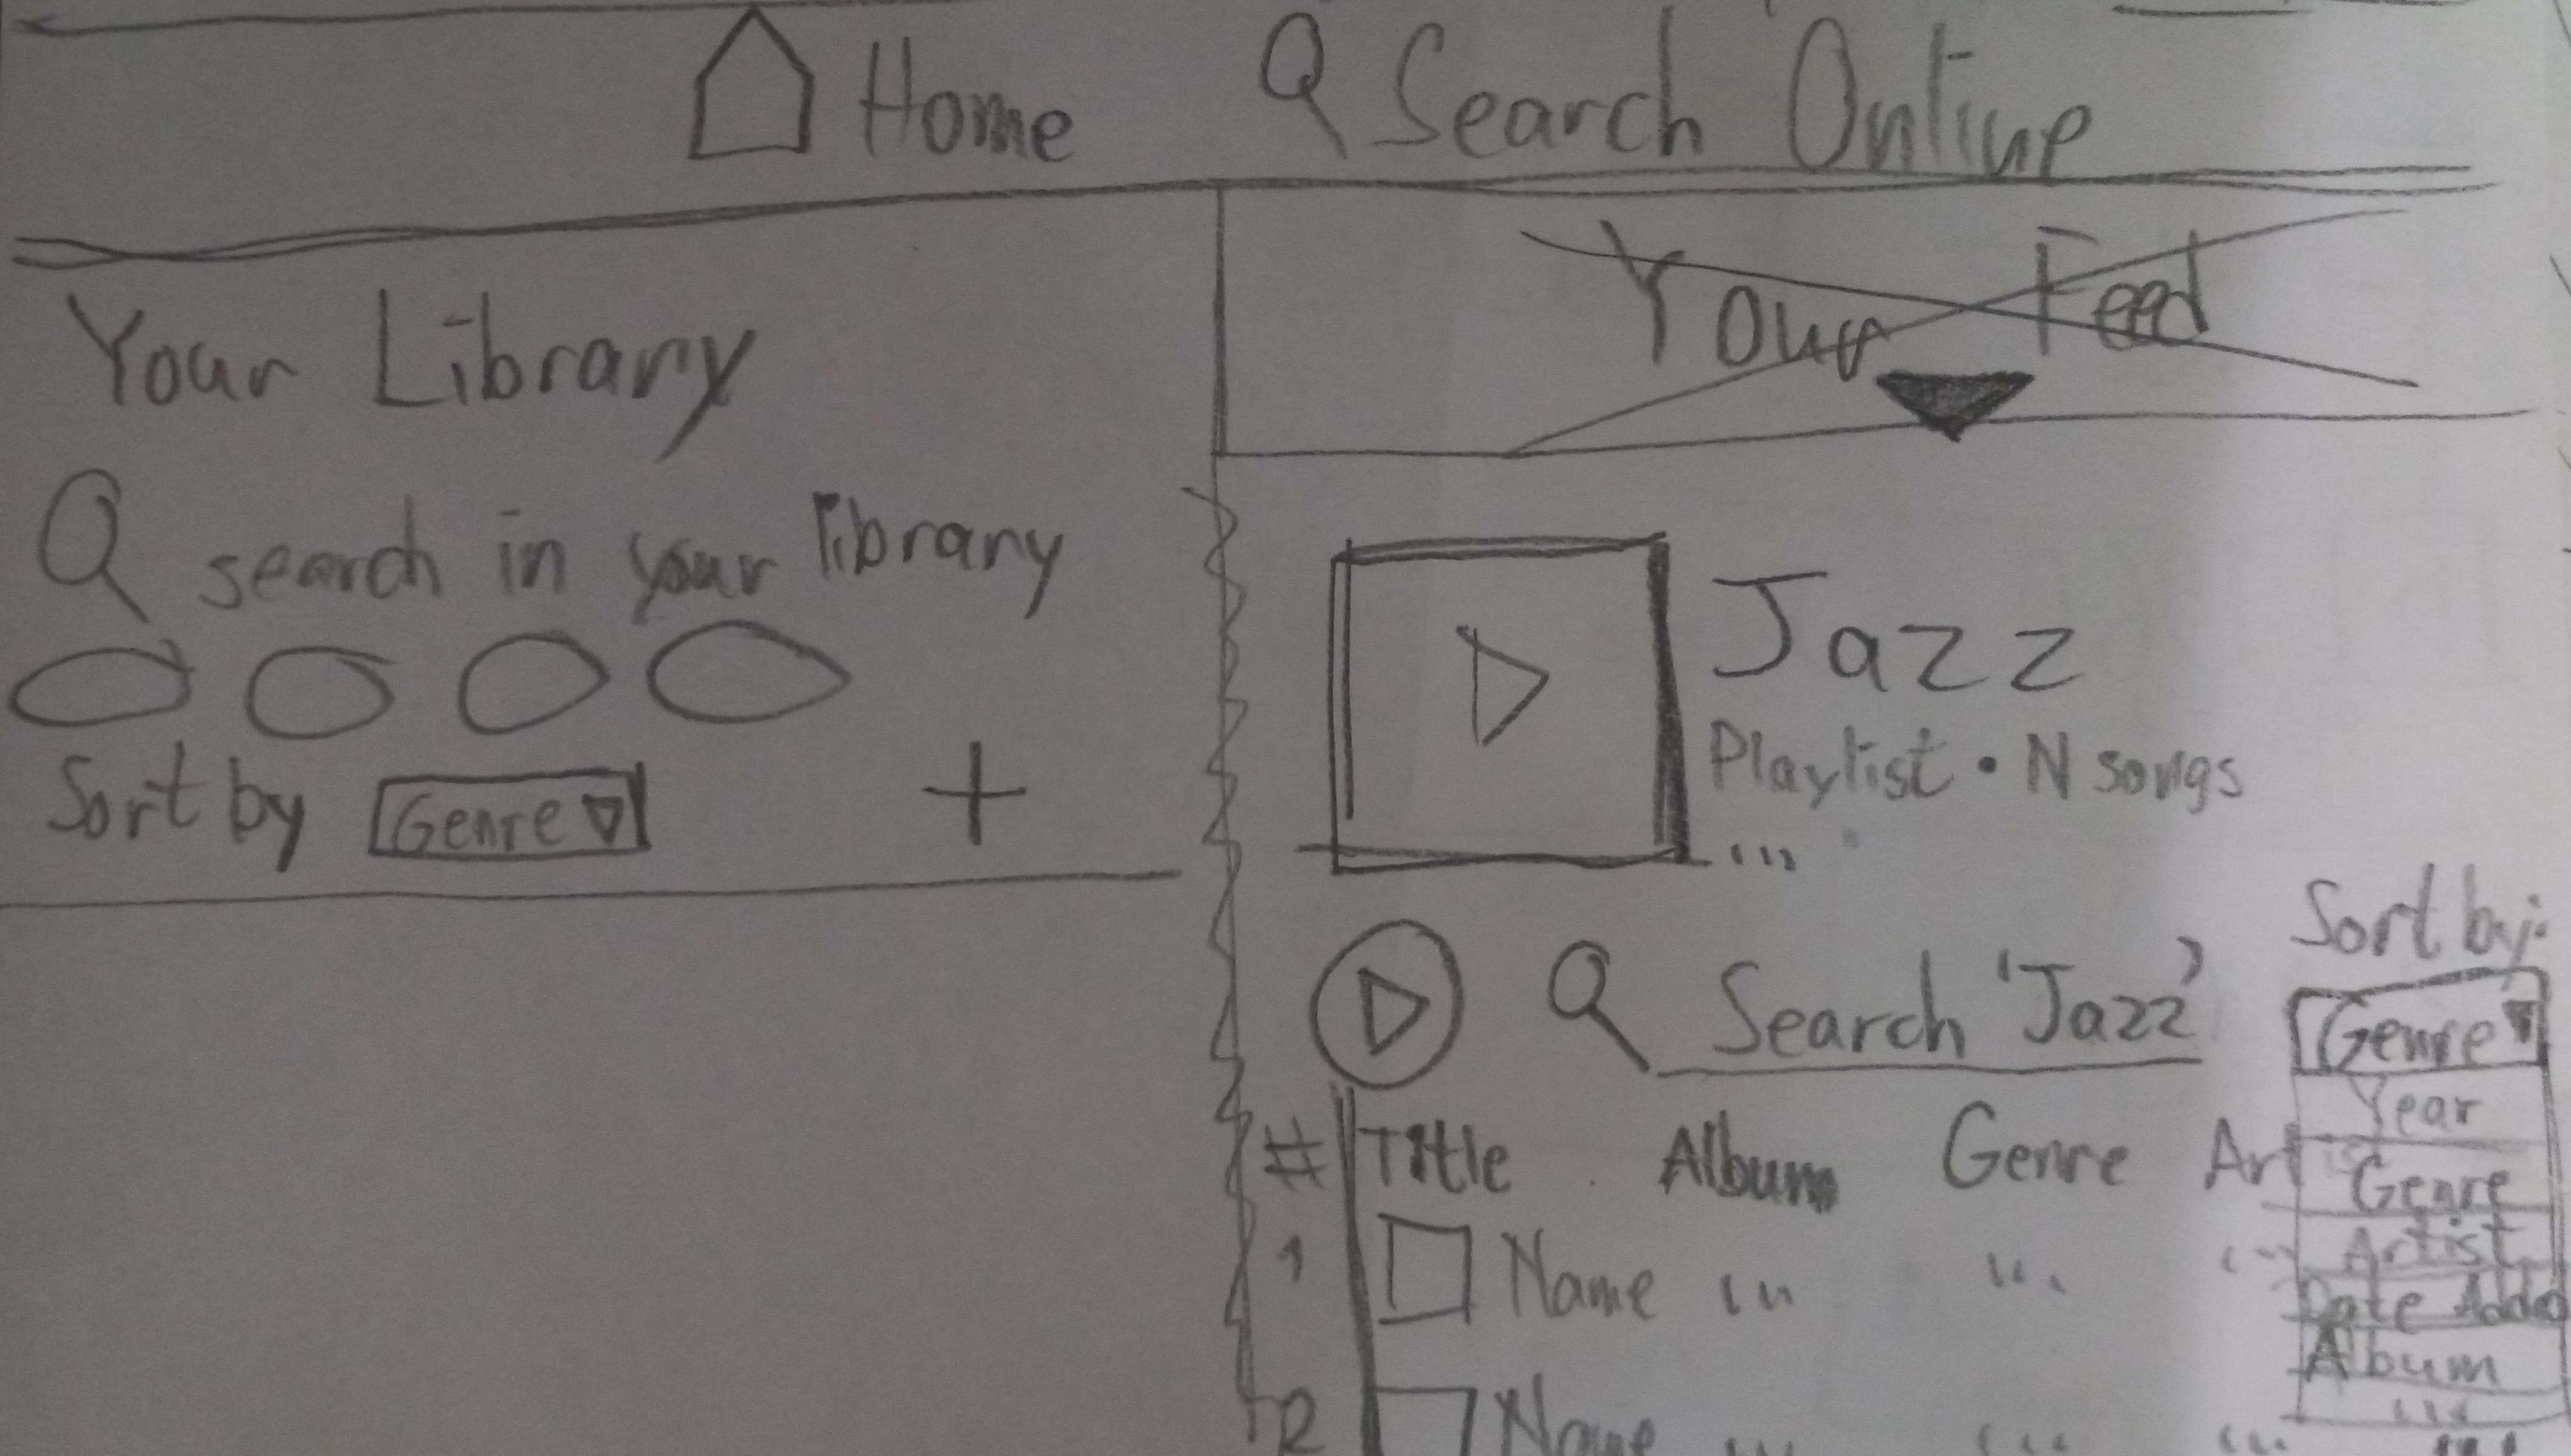 Home Search Online
Your Library
search in your library
Sort by Genre
+
Your Feed
Jazz
Playlist • N songs
...
Search 'Jazz'
Sort by:
Genre
Year
Genre
Artist
Date Added
Album
...
# Title Album Genre Art
1 Name ... ... ...
2 Name ... ... ...